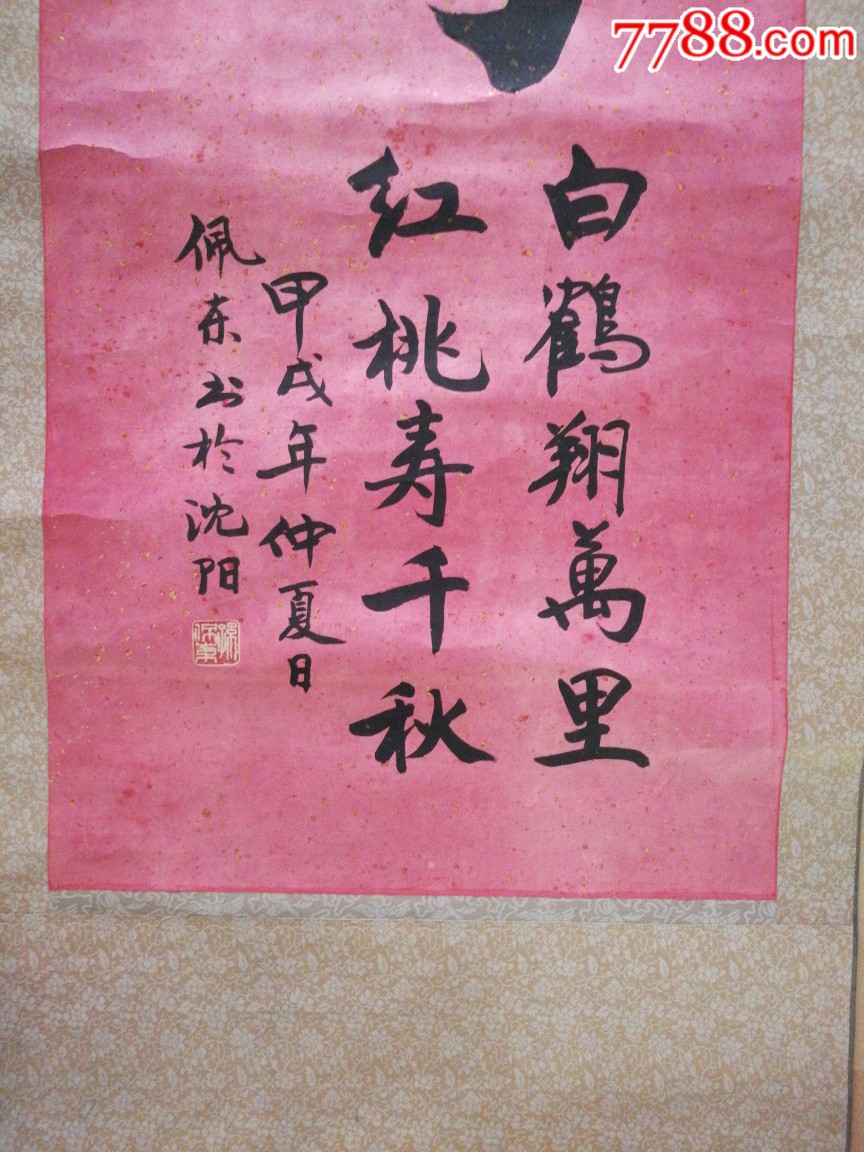 7788.com
白鶴翔萬里
红桃寿千秋
甲戌年仲夏日
佩东书於沈阳